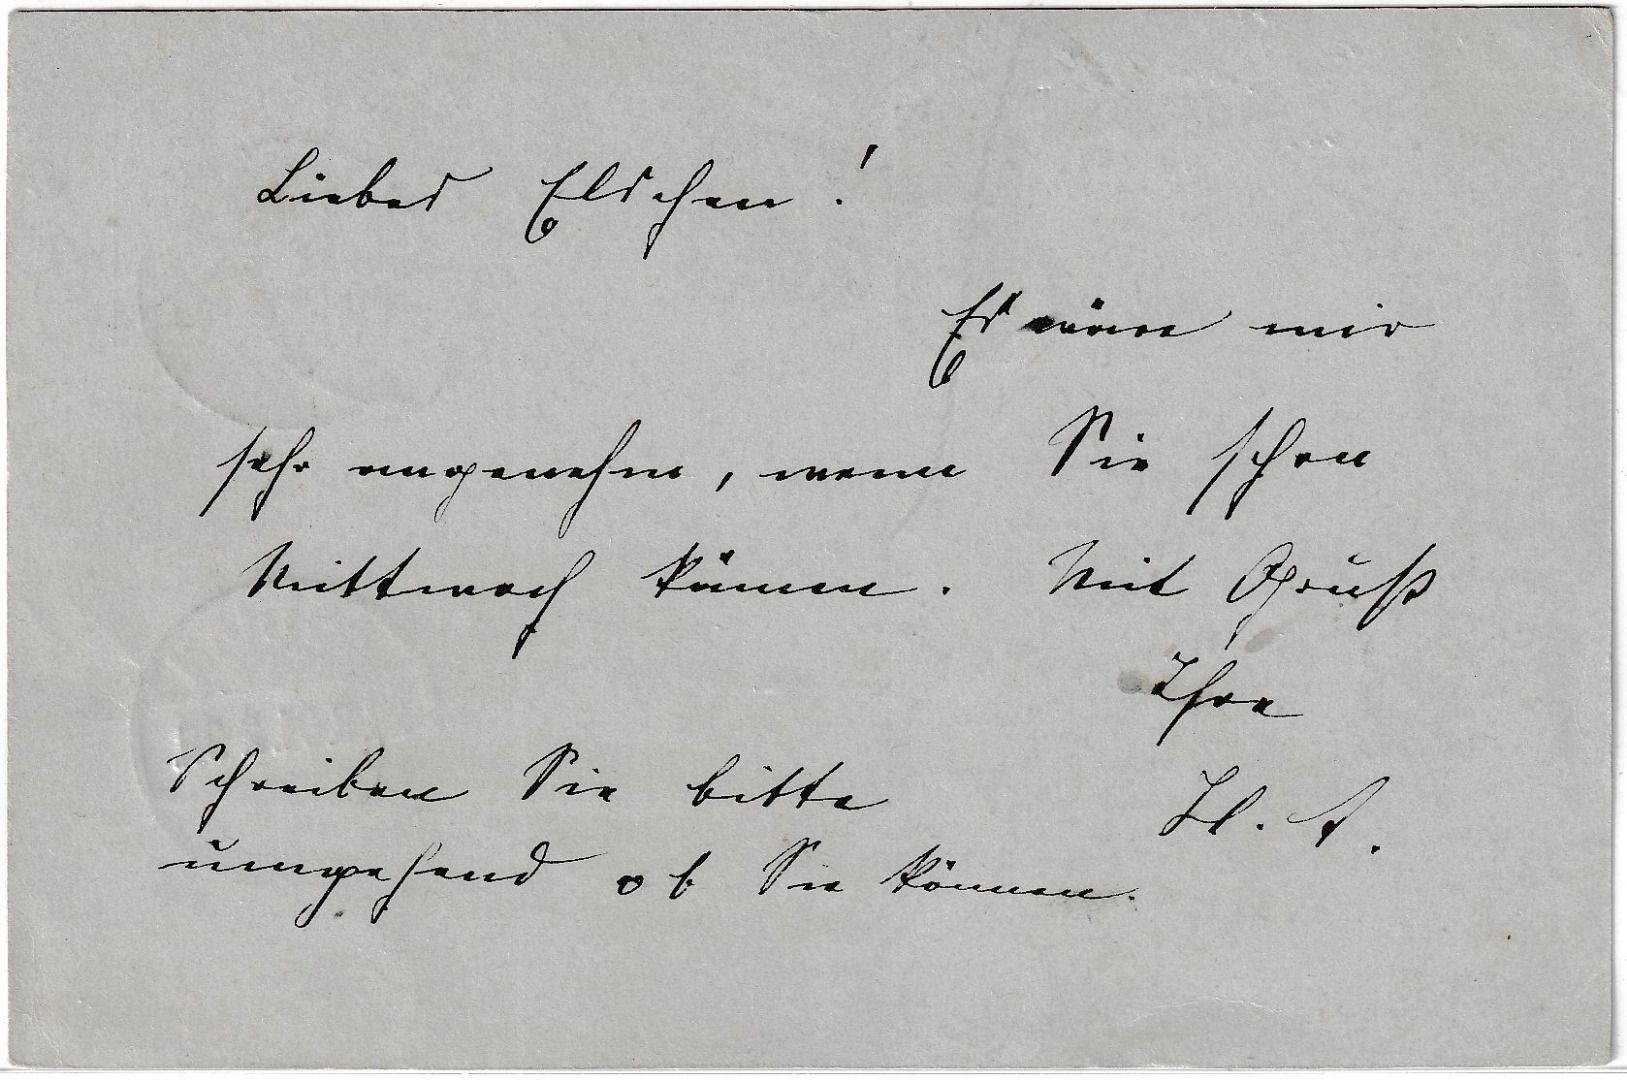 Liebes Elschen!
Es wäre mir
sehr angenehm, wenn Sie schon
Mittwoch kämen. Mit Gruß
Ihre
Schreiben Sie bitte
umgehend ob Sie können.